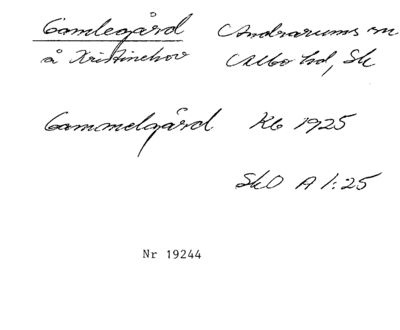 Gamlegård Andrarums sn
å Kristinehov Albo hd, Sk
Gammelgård Kb 1925
SkO A 1:25
Nr 19244